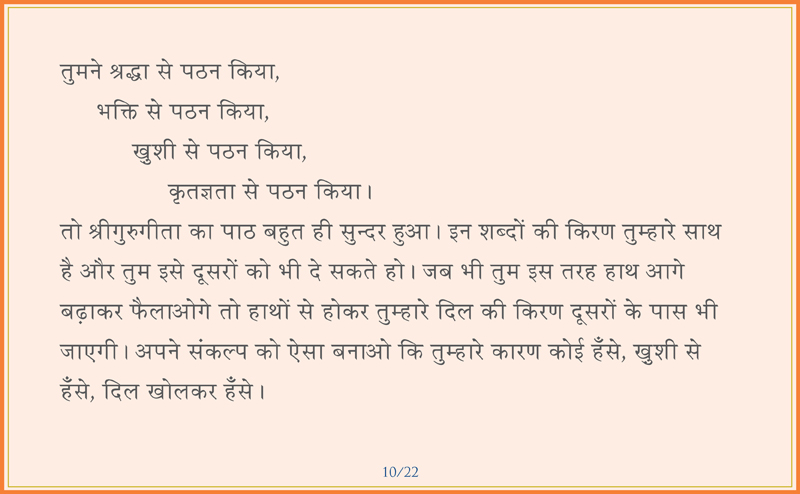 तुमने श्रद्धा से पठन किया,
भक्ति से पठन किया,
खुशी से पठन किया,
कृतज्ञता से पठन किया।
तो श्रीगुरुगीता का पाठ बहुत ही सुन्दर हुआ। इन शब्दों की किरण तुम्हारे साथ
है और तुम इसे दूसरों को भी दे सकते हो। जब भी तुम इस तरह हाथ आगे
बढ़ाकर फैलाओगे तो हाथों से होकर तुम्हारे दिल की किरण दूसरों के पास भी
जाएगी। अपने संकल्प को ऐसा बनाओ कि तुम्हारे कारण कोई हँसे, खुशी से
हँसे, दिल खोलकर हँसे।
10/22